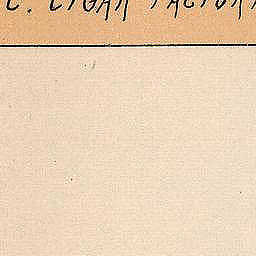 C. CIGAR FACTORY